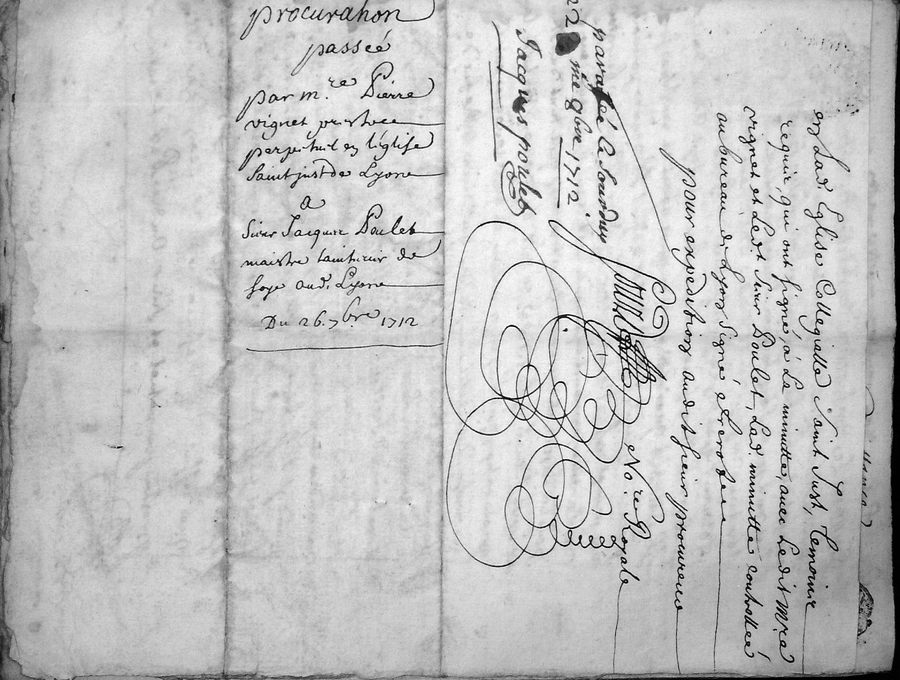 procuration
passeé
par m.re Pierre
vignet
perpetuel en l'église
Saint just de Lyon
a
Sieur Jacques Poulet
maistre tainturier de
soye aud. Lyon
Du 26. 7bre 1712
en Lad. Eglise Collegialle Saint Just, Temoins
requis, qui ont signé, à La minutte, avec Ledit Mre
vignet et Ledt sieur Poulet, Lad. minutte controlleé
au bureau de Lyon Signé
pour expedition audit sieur procureur
Nore Royale
parafée
me 8bre 1712.
Jacques poulet